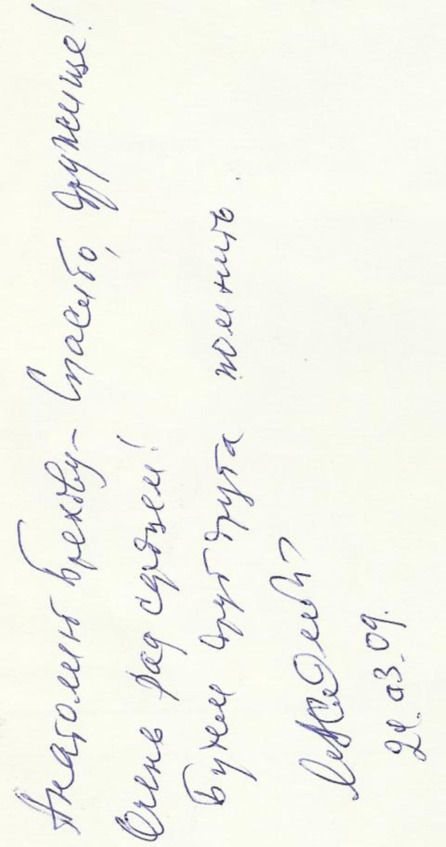 Анатолию Брехову – Спасибо, дружище!
Очень рад сердцем!
Будем друг друга помнить.
24.03.09.